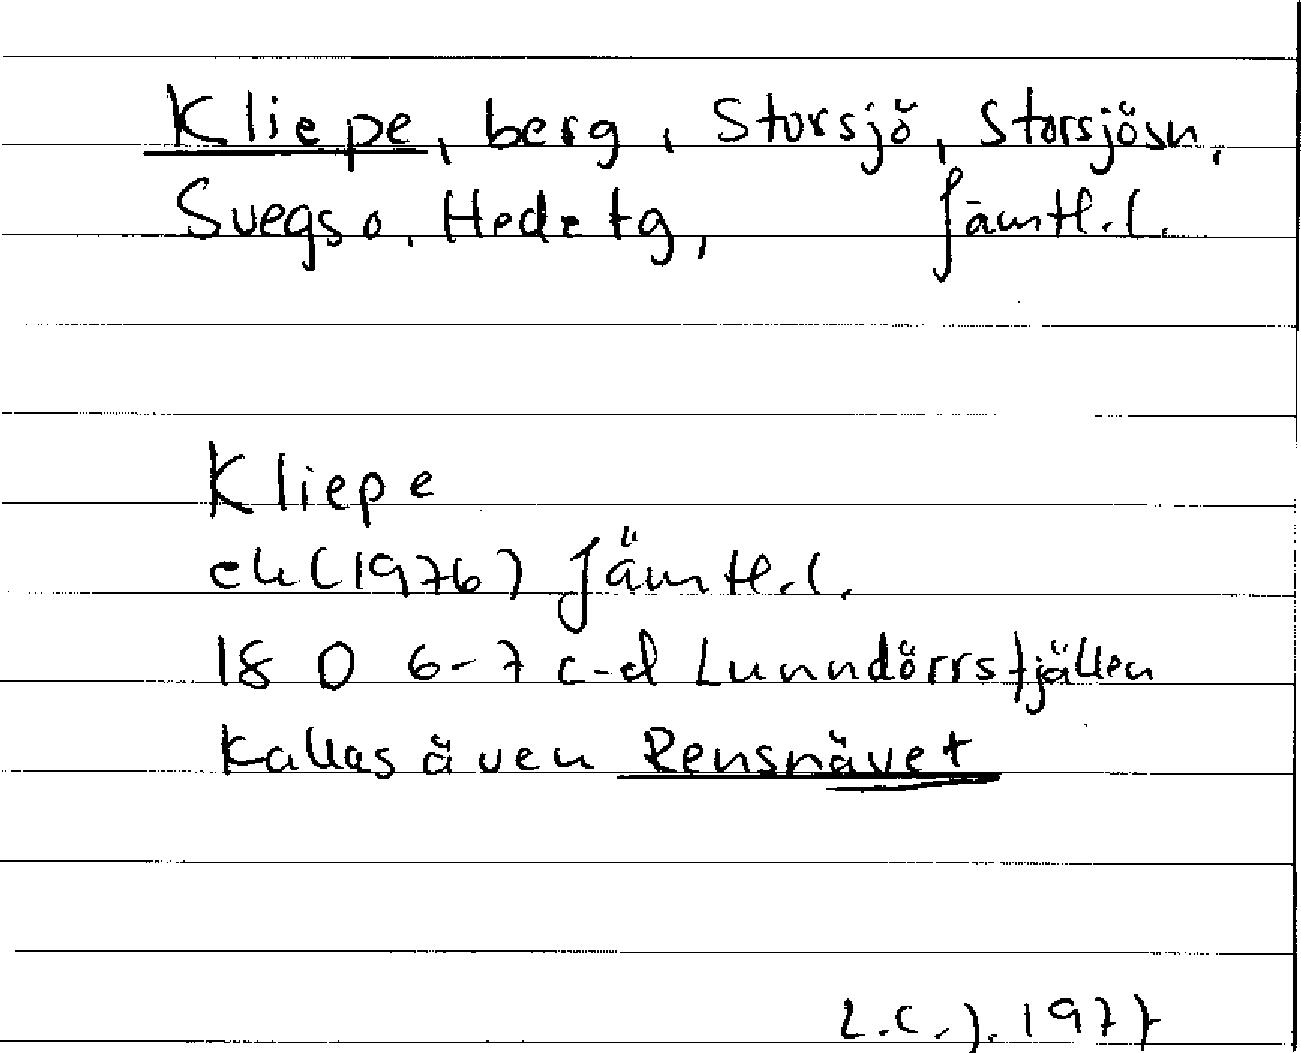 Kliepe, berg, Storsjö, Storsjösn,
Svegs o, Hede tg, Jämtl. l.
Kliepe
ek (1976) Jämtl. l.
18 D 6-7 c-d Lunndörrsfjällen
kallas även Rensnävet
L.C.J. 1977